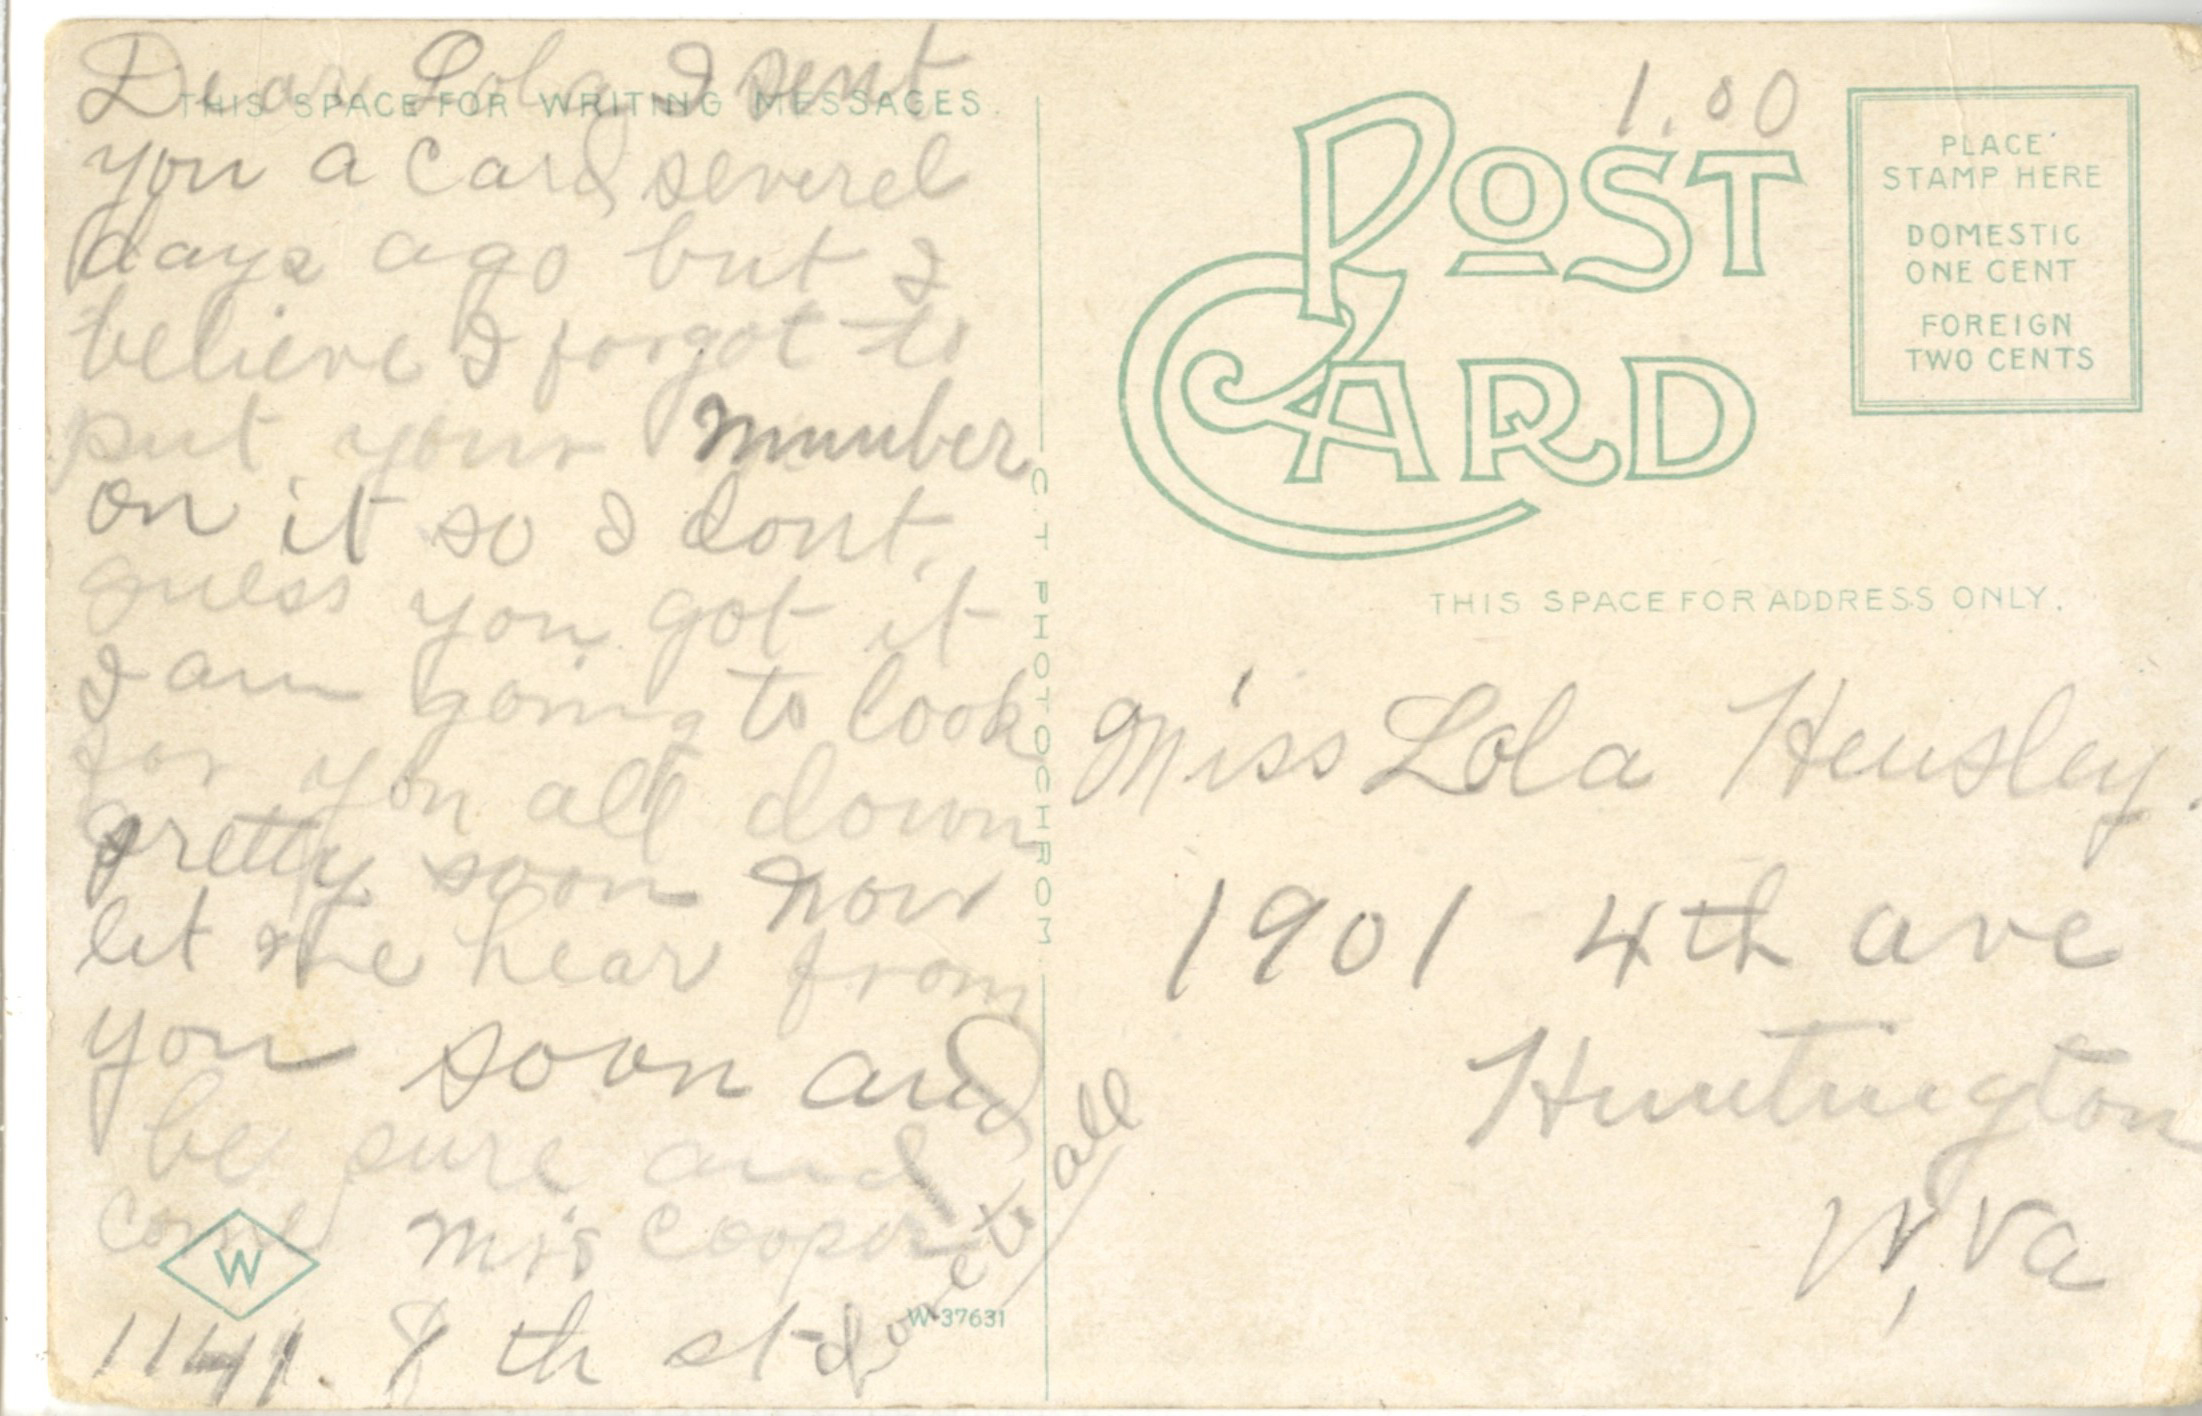 Dear Lola I sent
THIS SPACE FOR WRITING MESSAGES.
you a card severel
days ago but I
believe I forgot to
put your number
on it so I dont
guess you got it
I am going to look
for you all down
pretty soon now
let me hear from
you soon and
be sure and
come Mrs Cooper
1141 8th st
love to all
W
W-37631
C. T. PHOTOCHROM
1.00
POST
CARD
PLACE
STAMP HERE
DOMESTIC
ONE CENT
FOREIGN
TWO CENTS
THIS SPACE FOR ADDRESS ONLY.
Miss Lola Hensley.
1901 4th ave
Huntington
W, Va